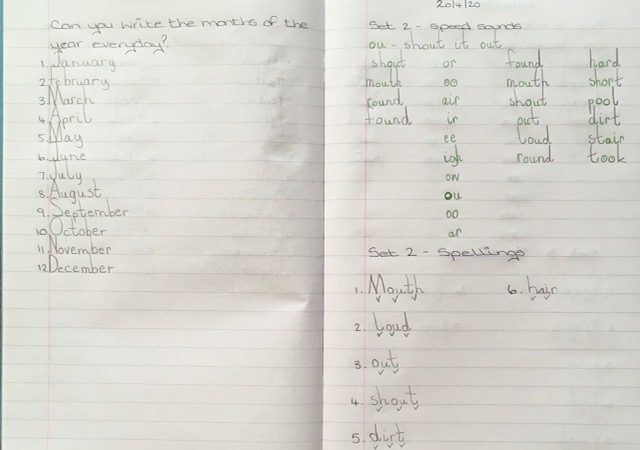 Can you write the months of the
year everyday?
1. January
2. February
3. March
4. April
5. May
6. June
7. July
8. August
9. September
10. October
11. November
12. December
20/4/20
Set 2 - Speed sounds
ou - shout it out
shout or found hard
mouth oo mouth short
round air shout pool
found ir out dirt
ee loud stair
igh round took
ow
ou
oo
ar
Set 2 - Spellings
1. Mouth 6. hair
2. Loud
3. out
4. shout
5. dirt